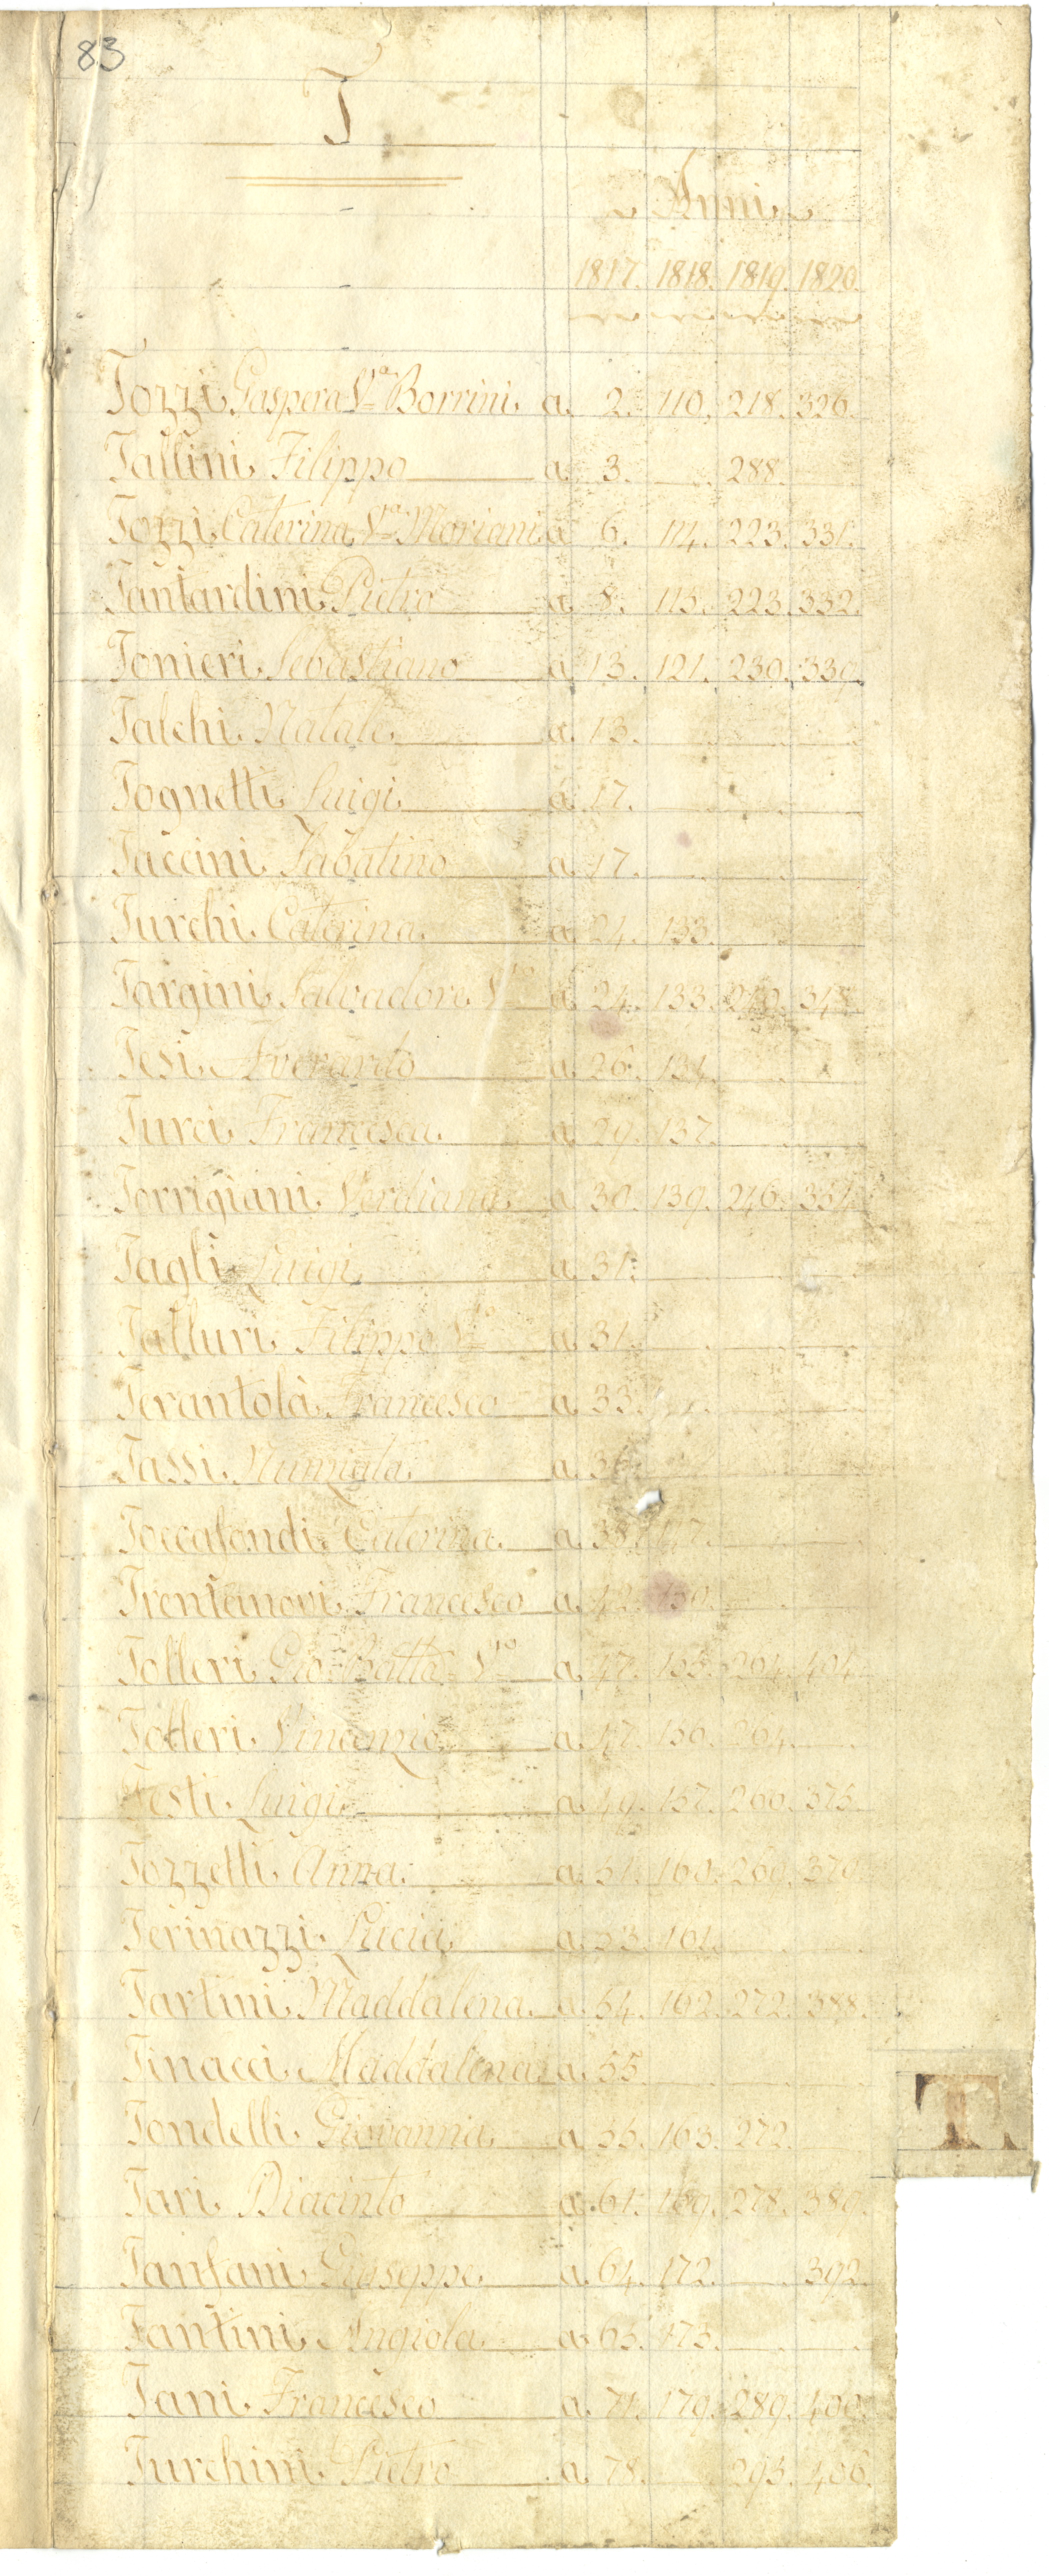 83
T
Anni
1817. 1818. 1819. 1820.
Tozzi Gaspera Vᵃ Borrini a 2. 110. 218. 326.
Tallini Filippo a 3. 288.
Tozzi Caterina Vᵃ Mariani a 6. 114. 223. 331.
Tantardini Pietro a 8. 115. 223. 332.
Tonieri Sebastiano a 13. 121. 230. 339.
Talchi Natale a 13.
Tognetti Luigi a 17.
Taccini Sabatino a 17.
Turchi Caterina a 24. 133.
Targini Salvadore Vᵒ a 24. 133. 240. 348.
Tesi Averardo a 26. 134.
Turci Francesca a 29. 137.
Torrigiani Verdiana a 30. 139. 246. 354.
Tagli Luigi a 31.
Talluri Filippo Vᵒ a 31.
Terantola Francesco a 33.
Tassi Nunziata a
Toccafondi Caterina a
Trentanovi Francesco a 42. 150.
Tolleri Gio. Batta Vᵒ a 47. 155. 294. 404.
Tolleri Vincenzio a 47. 156. 264.
Testi Luigi a 49. 157. 266. 375.
Tozzelli Anna a 51. 160. 269. 379.
Terinazzi Lucia a 53. 161.
Tartini Maddalena a 54. 162. 272. 388.
Tinacci Maddalena a 55.
Tondelli Giovanna a 55. 163. 272.
Tari Diacinto a 61. 169. 278. 389.
Tanfani Giuseppe a 64. 172. 392.
Tantini Angiola a 65. 173.
Tani Francesco a 71. 179. 289. 400.
Turchini Pietro a 78. 295. 406.
T.